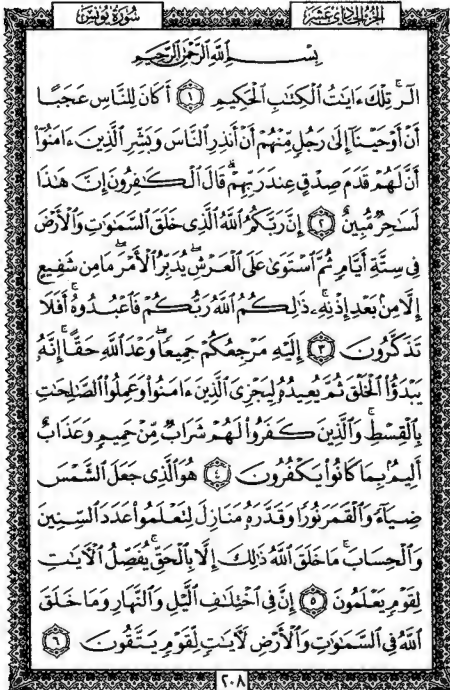 الجزء الحادي عشر سورة يونس
بسم الله الرحمن الرحيم
الٓرۚ تِلۡكَ ءَايَٰتُ ٱلۡكِتَٰبِ ٱلۡحَكِيمِ ١ أَكَانَ لِلنَّاسِ عَجَبًا
أَنۡ أَوۡحَيۡنَآ إِلَىٰ رَجُلٖ مِّنۡهُمۡ أَنۡ أَنذِرِ ٱلنَّاسَ وَبَشِّرِ ٱلَّذِينَ ءَامَنُوٓاْ
أَنَّ لَهُمۡ قَدَمَ صِدۡقٍ عِندَ رَبِّهِمۡۗ قَالَ ٱلۡكَٰفِرُونَ إِنَّ هَٰذَا
لَسَٰحِرٞ مُّبِينٌ ٢ إِنَّ رَبَّكُمُ ٱللَّهُ ٱلَّذِي خَلَقَ ٱلسَّمَٰوَٰتِ وَٱلۡأَرۡضَ
فِي سِتَّةِ أَيَّامٖ ثُمَّ ٱسۡتَوَىٰ عَلَى ٱلۡعَرۡشِۖ يُدَبِّرُ ٱلۡأَمۡرَۖ مَا مِن شَفِيعٍ
إِلَّا مِنۢ بَعۡدِ إِذۡنِهِۦۚ ذَٰلِكُمُ ٱللَّهُ رَبُّكُمۡ فَٱعۡبُدُوهُۚ أَفَلَا
تَذَكَّرُونَ ٣ إِلَيۡهِ مَرۡجِعُكُمۡ جَمِيعٗاۖ وَعۡدَ ٱللَّهِ حَقًّاۚ إِنَّهُۥ
يَبۡدَؤُاْ ٱلۡخَلۡقَ ثُمَّ يُعِيدُهُۥ لِيَجۡزِيَ ٱلَّذِينَ ءَامَنُواْ وَعَمِلُواْ ٱلصَّٰلِحَٰتِ
بِٱلۡقِسۡطِۚ وَٱلَّذِينَ كَفَرُواْ لَهُمۡ شَرَابٞ مِّنۡ حَمِيمٖ وَعَذَابٌ
أَلِيمُۢ بِمَا كَانُواْ يَكۡفُرُونَ ٤ هُوَ ٱلَّذِي جَعَلَ ٱلشَّمۡسَ
ضِيَآءٗ وَٱلۡقَمَرَ نُورٗا وَقَدَّرَهُۥ مَنَازِلَ لِتَعۡلَمُواْ عَدَدَ ٱلسِّنِينَ
وَٱلۡحِسَابَۚ مَا خَلَقَ ٱللَّهُ ذَٰلِكَ إِلَّا بِٱلۡحَقِّۚ يُفَصِّلُ ٱلۡأٓيَٰتِ
لِقَوۡمٖ يَعۡلَمُونَ ٥ إِنَّ فِي ٱخۡتِلَٰفِ ٱلَّيۡلِ وَٱلنَّهَارِ وَمَا خَلَقَ
ٱللَّهُ فِي ٱلسَّمَٰوَٰتِ وَٱلۡأَرۡضِ لَأٓيَٰتٖ لِّقَوۡمٖ يَتَّقُونَ ٦
٢٠٨